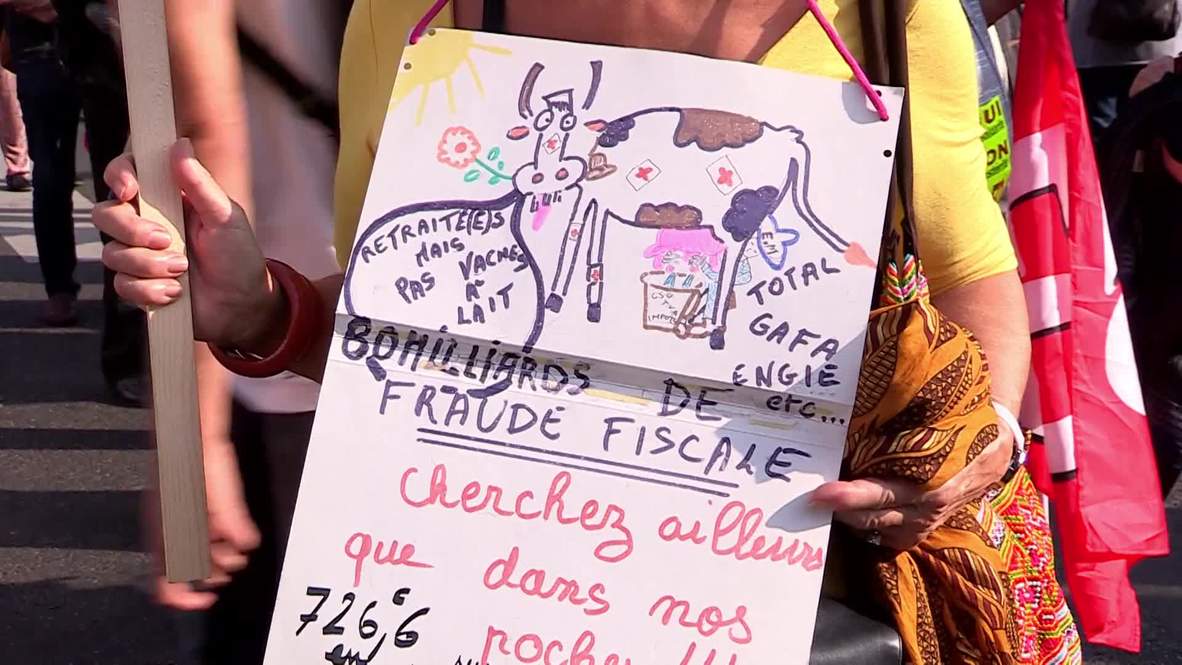 RETRAITÉ(E)S
MAIS
PAS VACHES
À
LAIT
CSG
IMPOTS
EM
TOTAL
GAFA
ENGIE
etc...
80 MILLIARDS DE
FRAUDE FISCALE
Cherchez ailleurs
que dans nos
poches !!!
726,6 €
UI
ON